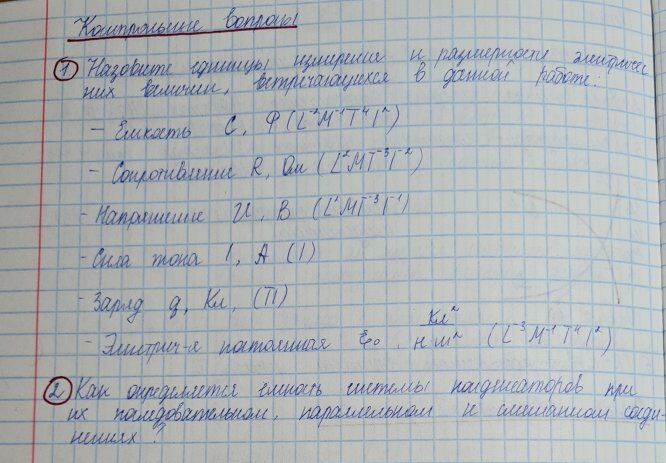 Контрольные вопросы
1 Назовите единицы измерения и размерности электричес
ких величин, встречающихся в данной работе:
- Емкость C, Ф (L⁻²M⁻¹T⁴I²)
- Сопротивление R, Ом (L²MT⁻³I⁻²)
- Напряжение U, В (L²MT⁻³I⁻¹)
- Сила тока I, А (I)
- Заряд q, Кл, (TI)
- Электрич-я постоянная ε₀, Кл²/Н·м² (L⁻³M⁻¹T⁴I²)
2 Как определяется емкость системы конденсаторов при
их последовательном, параллельном и смешанном соеди-
нениях?